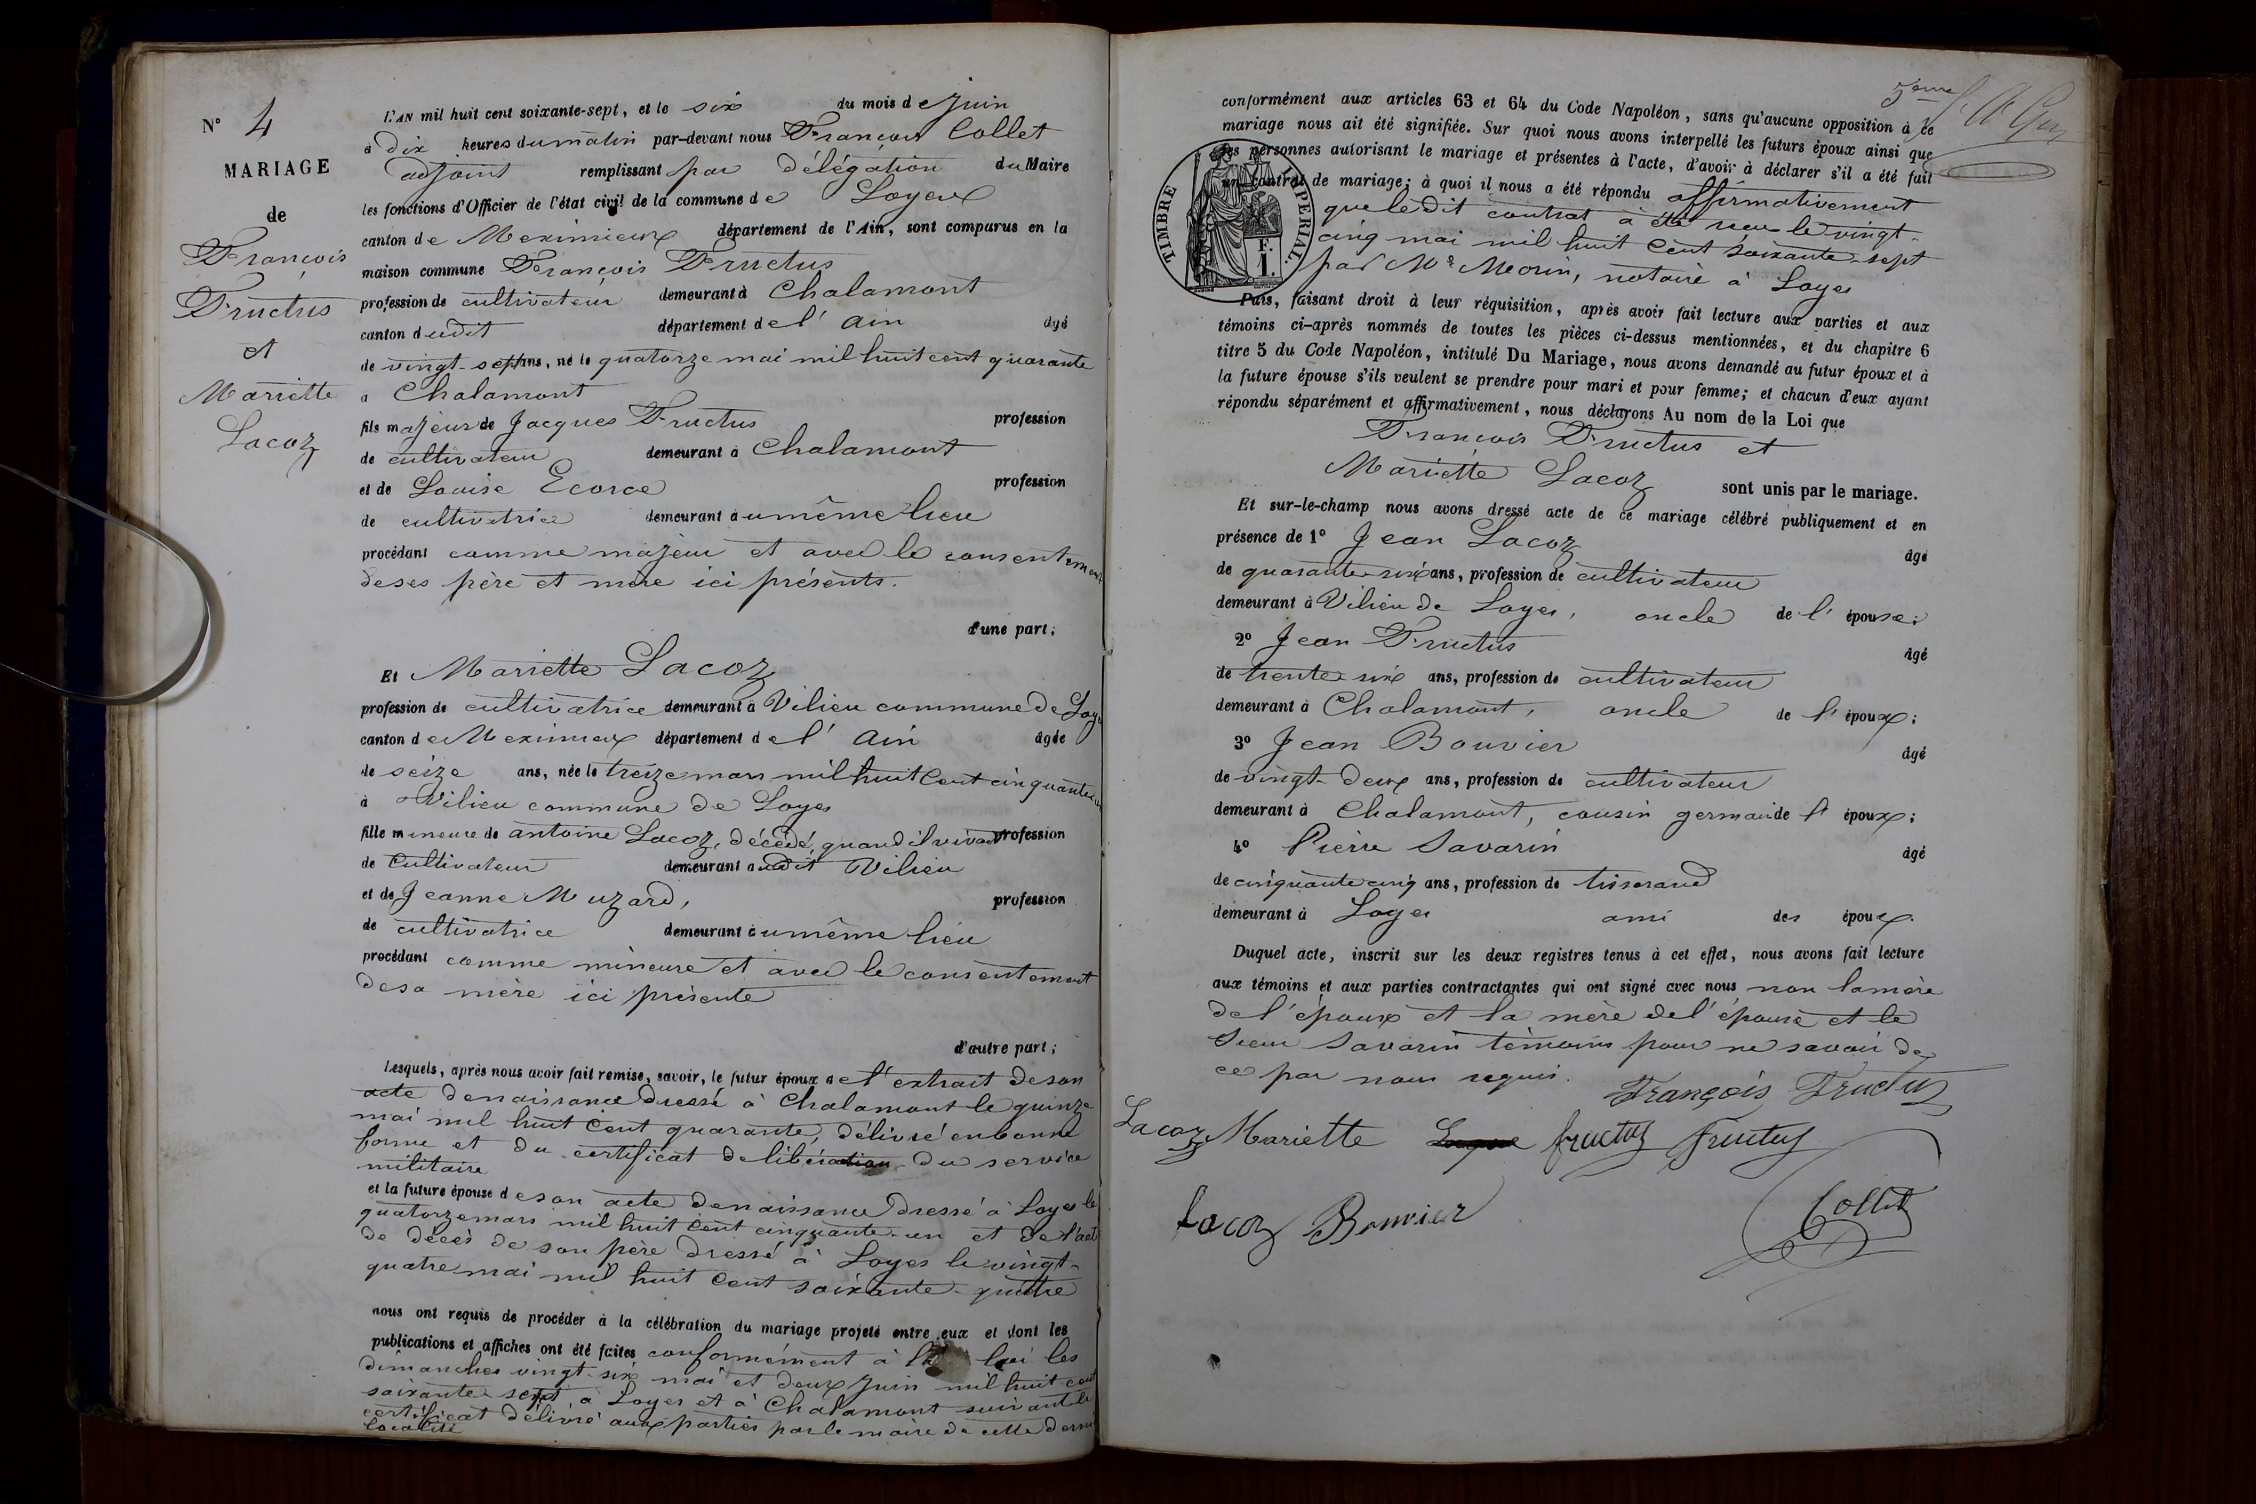 N° 4
MARIAGE
de
François
Fructus
et
Mariette
Lacoz
L'AN mil huit cent soixante-sept, et le six du mois de Juin
à dix heures du matin par-devant nous François Collet
adjoint remplissant par délégation du Maire
les fonctions d'Officier de l'état civil de la commune de Loyes
canton de Meximieux département de l'Ain, sont comparus en la
maison commune François Fructus
profession de cultivateur demeurant à Chalamont
canton dudit département de l' ain âgé
de vingt-sept ans, né le quatorze mai mil huit cent quarante
à Chalamont
fils majeur de Jacques Fructus profession
de cultivateur demeurant à Chalamont
et de Louise Ecorce profession
de cultivatrice demeurant au même lieu
procédant comme majeur et avec le consentement
de ses père et mère ici présents.
d'une part;
Et Mariette Lacoz
profession de cultivatrice demeurant à Vilieu commune de Loyes
canton de Meximieux département de l' ain âgée
de seize ans, née le treize mars mil huit cent cinquante un
à Vilieu commune de Loyes
fille mineure de antoine Lacoz, décédé, quand il vivait profession
de cultivateur demeurant audit Vilieu
et de Jeanne Muzard, profession
de cultivatrice demeurant au même lieu
procédant comme mineure et avec le consentement
de sa mère ici présente
d'autre part;
Lesquels, après nous avoir fait remise, savoir, le futur époux de l'extrait de son
acte de naissance dressé à Chalamont le quinze
mai mil huit cent quarante, délivré en bonne
forme et du certificat de libération du service
militaire
et la future épouse de son acte de naissance dressé à Loyes le
quatorze mars mil huit cent cinquante-un et de l'acte
de décès de son père dressé à Loyes le vingt-
quatre mai mil huit cent soixante-quatre
nous ont requis de procéder à la célébration du mariage projeté entre eux et dont les
publications et affiches ont été faites conformément à la loi les
dimanches vingt-six mai et deux juin mil huit cent
soixante-sept à Loyes et à Chalamont suivant le
certificat délivré aux parties par le maire de cette dernière
localité
5ème
conformément aux articles 63 et 64 du Code Napoléon, sans qu'aucune opposition à ce
mariage nous ait été signifiée. Sur quoi nous avons interpellé les futurs époux ainsi que
les personnes autorisant le mariage et présentes à l'acte, d'avoir à déclarer s'il a été fait
un contrat de mariage; à quoi il nous a été répondu affirmativement
que ledit contrat a été reçu le vingt-
cinq mai mil huit cent soixante-sept
par Me Morin, notaire à Loyes
TIMBRE IMPERIAL.
F.
1.
Puis, faisant droit à leur réquisition, après avoir fait lecture aux parties et aux
témoins ci-après nommés de toutes les pièces ci-dessus mentionnées, et du chapitre 6
titre 5 du Code Napoléon, intitulé Du Mariage, nous avons demandé au futur époux et à
la future épouse s'ils veulent se prendre pour mari et pour femme; et chacun d'eux ayant
répondu séparément et affirmativement, nous déclarons Au nom de la Loi que
François Fructus et
Mariette Lacoz sont unis par le mariage.
Et sur-le-champ nous avons dressé acte de ce mariage célébré publiquement et en
présence de 1° Jean Lacoz âgé
de quarante-six ans, profession de cultivateur
demeurant à Vilieu de Loyes, oncle de l' épouse;
2° Jean Fructus âgé
de trente-six ans, profession de cultivateur
demeurant à Chalamont, oncle de l' époux;
3° Jean Bouvier âgé
de vingt-deux ans, profession de cultivateur
demeurant à Chalamont, cousin germain de l' époux;
4° Pierre Savarin âgé
de cinquante cinq ans, profession de tisserand
demeurant à Loyes ami des époux.
Duquel acte, inscrit sur les deux registres tenus à cet effet, nous avons fait lecture
aux témoins et aux parties contractantes qui ont signé avec nous non la mère
de l'époux et la mère de l'épouse et le
sieur Savarin témoins pour ne savoir de
ce par nous requis.
François Fructus
Lacoz Mariette fructus Fructus
Lacoz Bouvier Collet